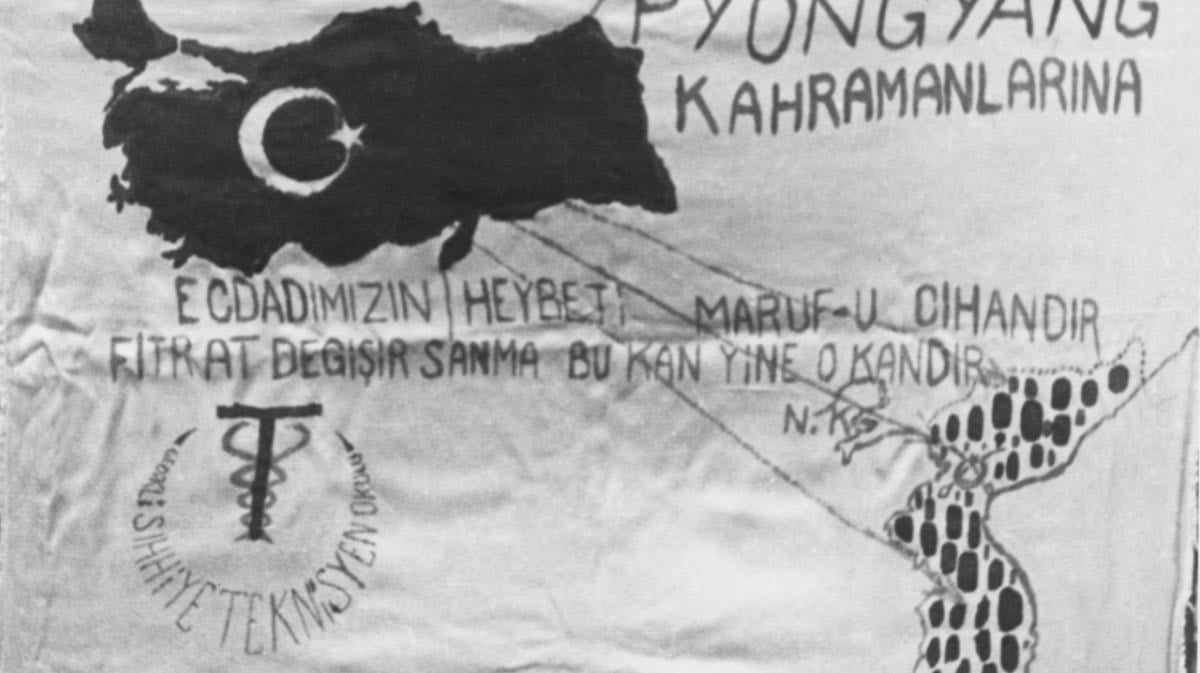 PYONGYANG
KAHRAMANLARINA
ECDADIMIZIN HEYBETİ MARUF-U CİHANDIR
FİTRAT DEĞIŞİR SANMA BU KAN YİNE O KANDIR
N. K.
T
SIHHİYE TEKNİSYEN OKULU